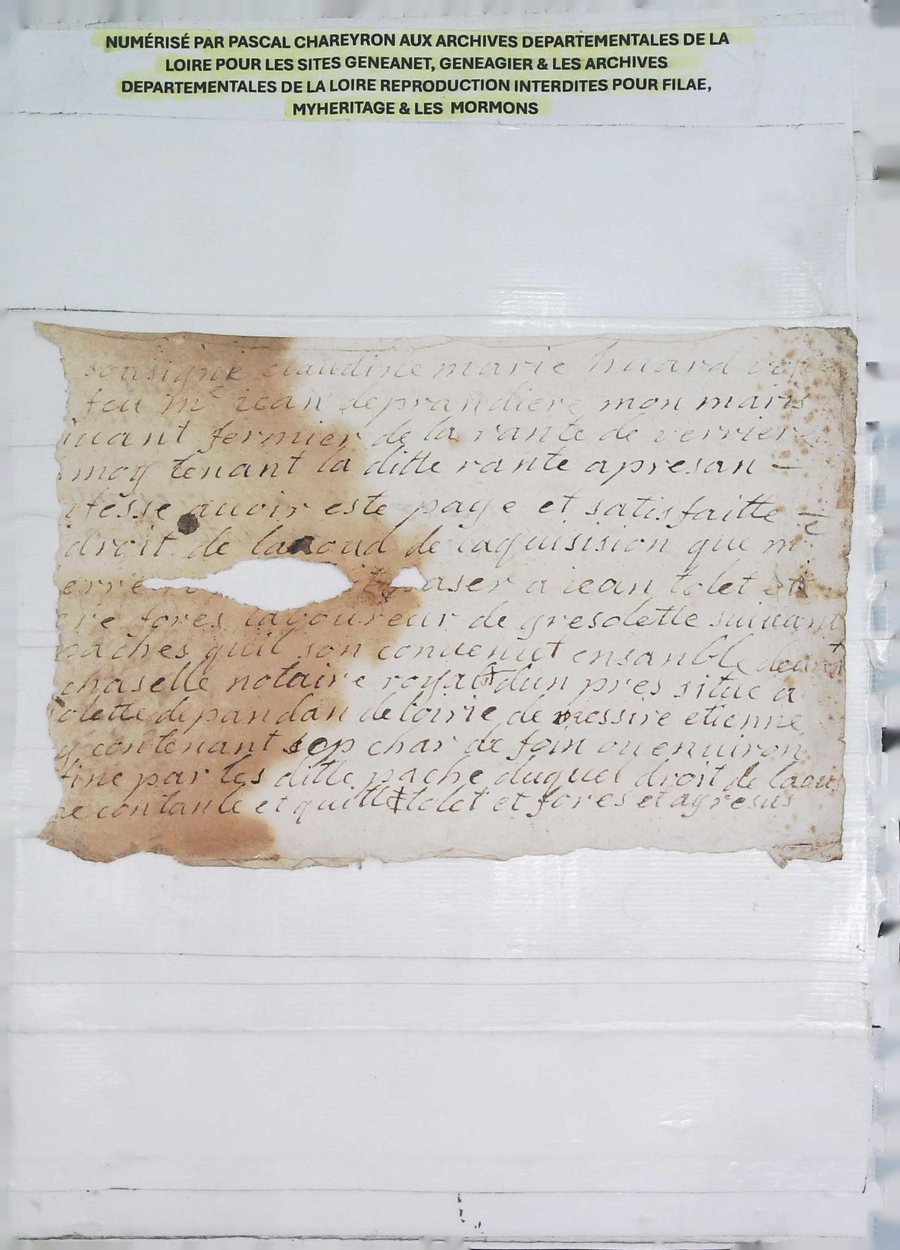 NUMÉRISÉ PAR PASCAL CHAREYRON AUX ARCHIVES DEPARTEMENTALES DE LA
LOIRE POUR LES SITES GENEANET, GENEAGIER & LES ARCHIVES
DEPARTEMENTALES DE LA LOIRE REPRODUCTION INTERDITES POUR FILAE,
MYHERITAGE & LES MORMONS
sousigné claudine marie huard
feu me iean deprandiere mon maris
uiuant fermier de la rante de verrier
moy tenant la ditte rante apresan
avoir este paye et satisfaitte
droit de laoud de laquisision que mr
erre aser a iean tolet
fores laboureur de gresolette suiuant
paches quil son conuenut ensanble deuant
chaselle notaire royal dun pres situe a
solette depandan de loirie de messire etienne
contenant sep char de foin ou enuiron
par les ditte pache duquel droit de laoud
contante et quitte tolet et fores et agresus